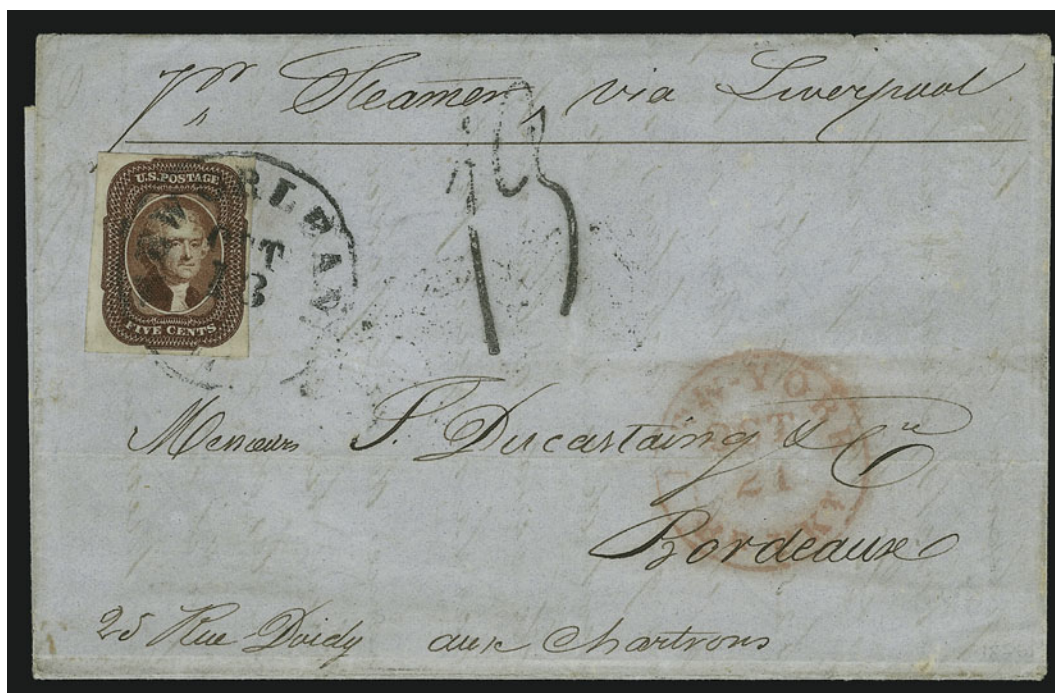 pr Steamer, via Liverpool
U.S. POSTAGE
FIVE CENTS
ORLEA
OCT
13
NEW-YORK
OCT
21
PKT
Messieurs S. Ducastaing & Cie
Bordeaux
25 Rue Doidy aux Chartrons